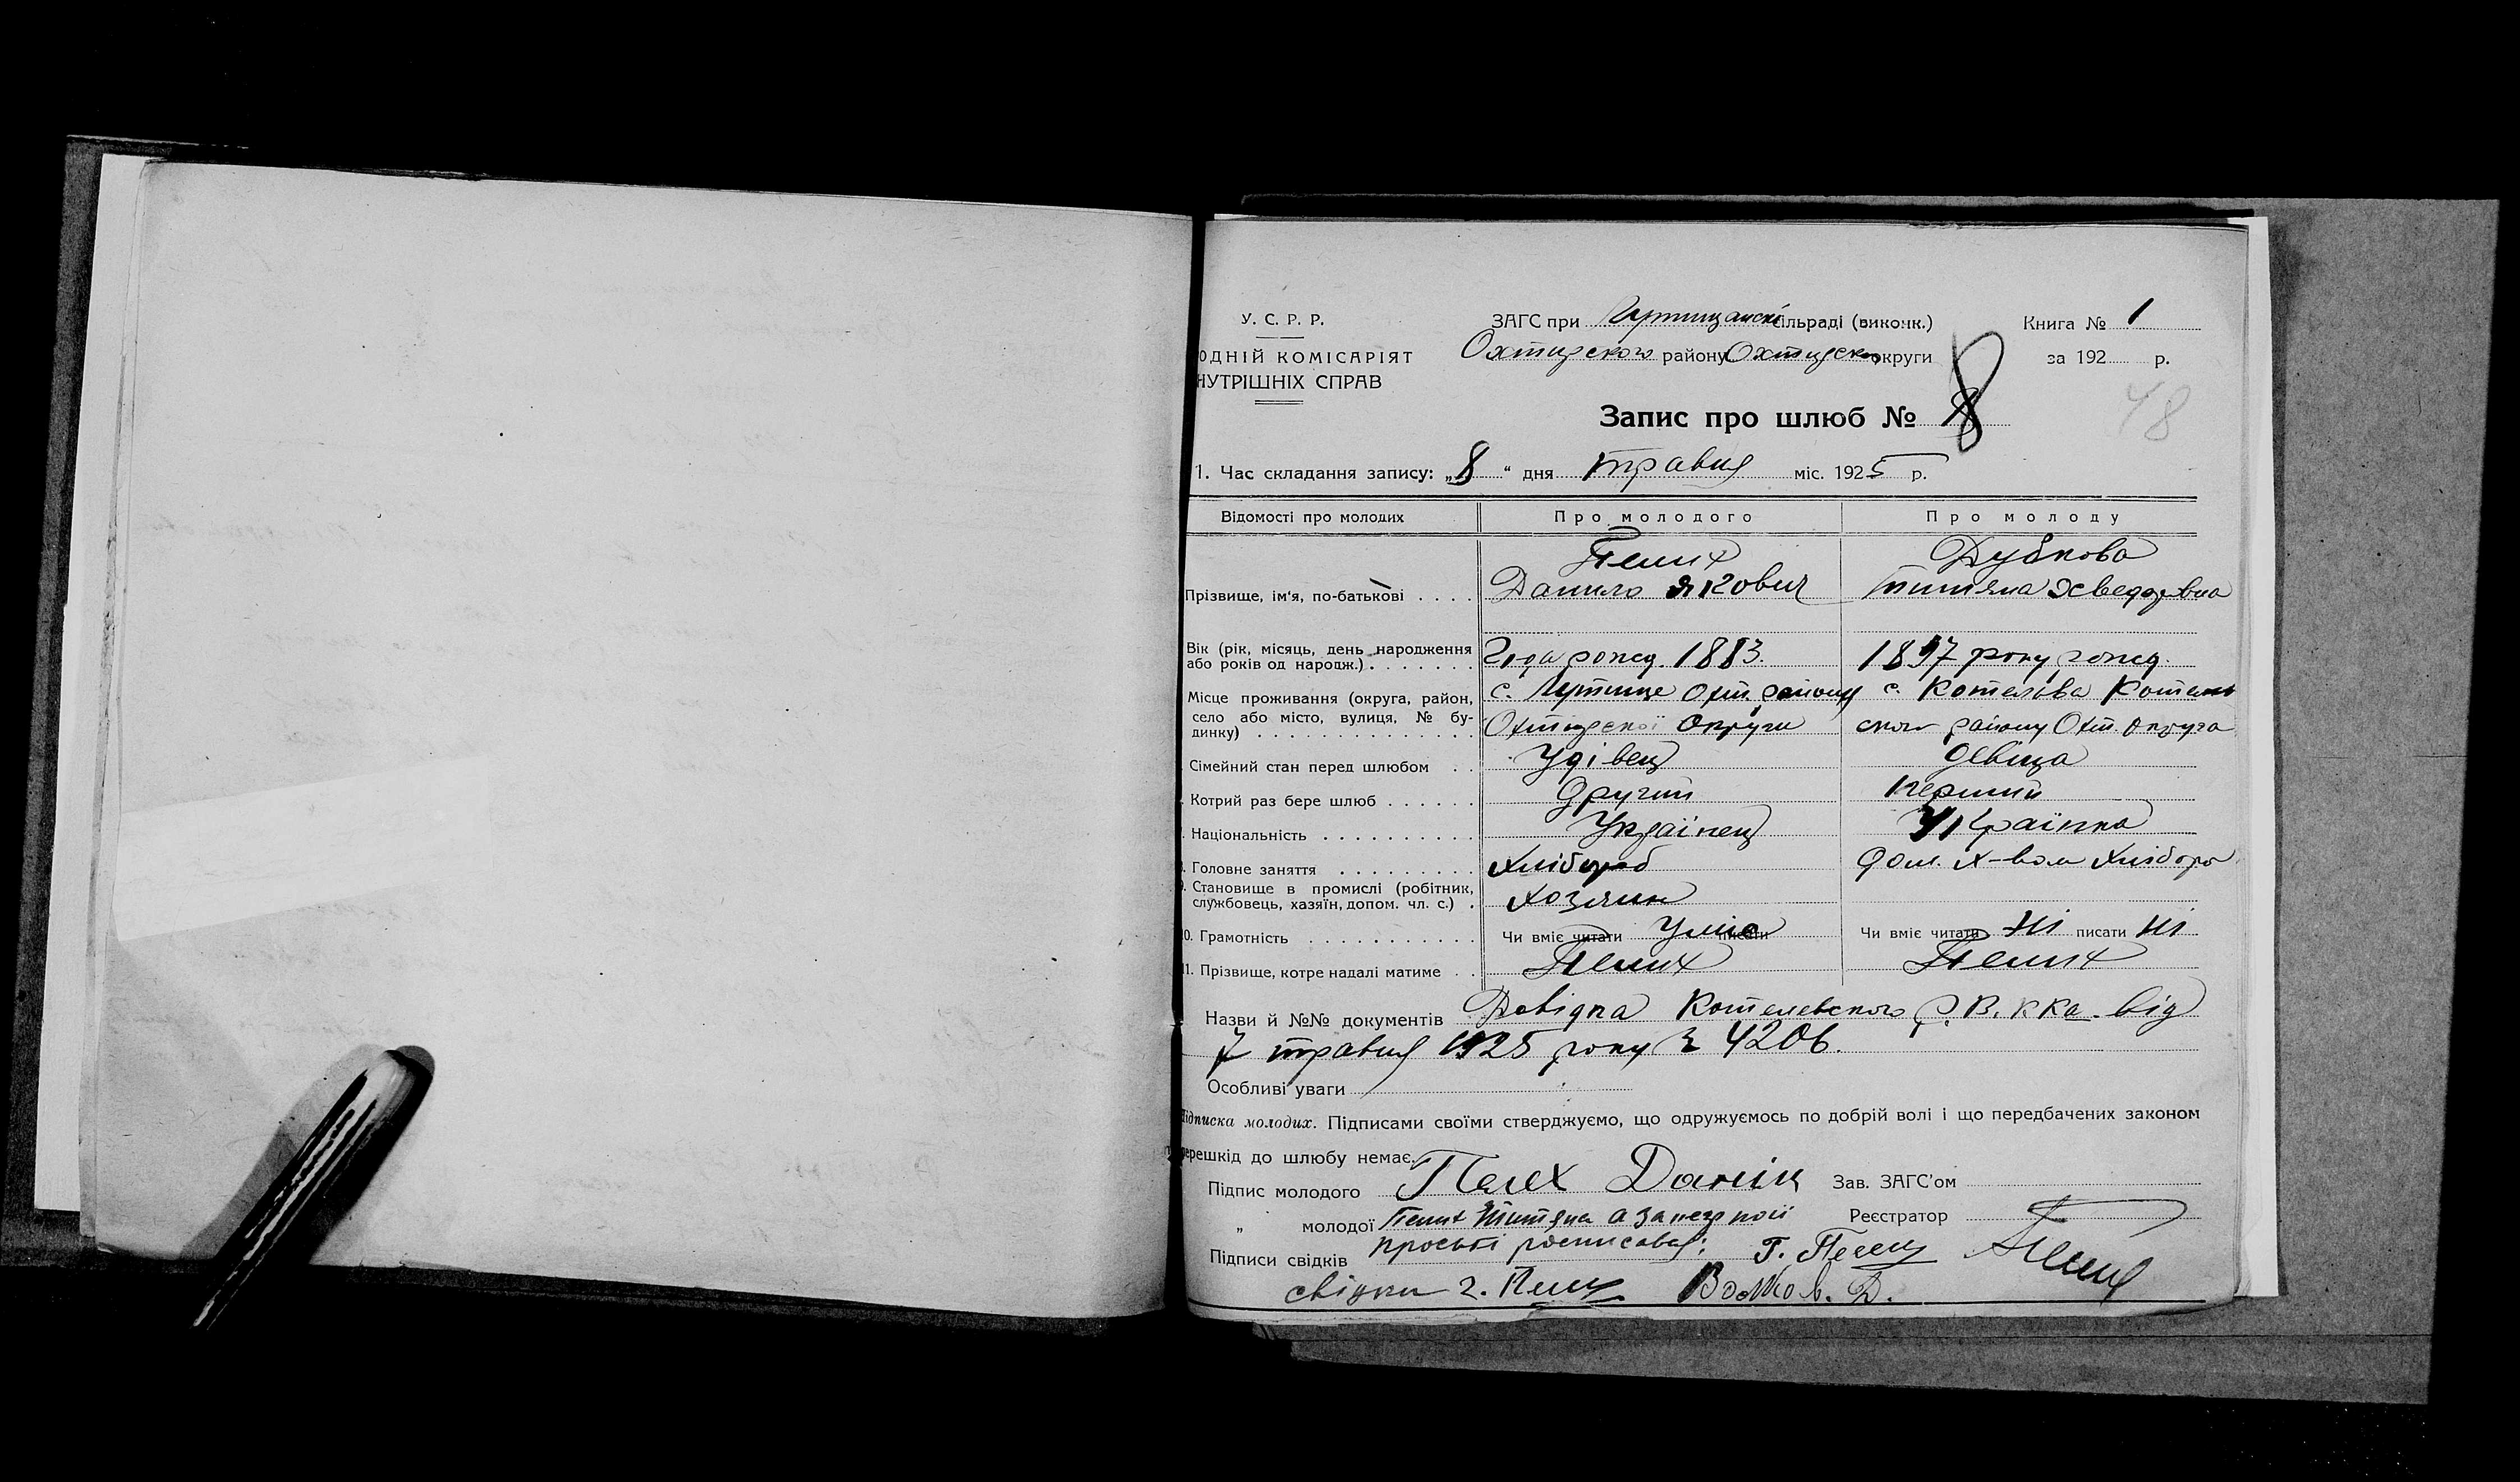 У. С. Р. Р.
ОДНІЙ КОМІСАРІЯТ
НУТРІШНІХ СПРАВ
ЗАГС при сільраді (виконк.)
Охтирского району Охтирско округи
Книга № 1
за 192 р.
48
Запис про шлюб № 8
1. Час складання запису: „8“ дня травня міс. 1925 р.
Відомості про молодих Про молодого Про молоду
Прізвище, ім'я, по-батькові . . . .
Пелих
Данило Якович
Дубкова
Титяна
Вік (рік, місяць, день народження
або років од народж.) . . . . . . .
Года рожд. 1883.
1897 року рожд.
Місце проживання (округа, район,
село або місто, вулиця, № бу-
динку) . . . . . . . . . . . . . .
с. Лутище Охт. району
Охтирскої Округи
с. Котельва Котель
ского району Охт. округа
Сімейний стан перед шлюбом . . Удівец девіца
Котрий раз бере шлюб . . . . . . Другий перший
Національність . . . . . . . . . . Українец Українка
Головне заняття . . . . . . . . . Хлібороб дом. х-вом хлібороб
Становище в промислі (робітник,
службовець, хазяїн, допом. чл. с.) .
Хозяин
10. Грамотність . . . . . . . . . . . Чи вміє читати Уміє писати Чи вміє читати Ні писати Ні
11. Прізвище, котре надалі матиме . . Пелих Пелих
Назви й №№ документів Довідка Котелевского Р.В.ККа. від
7 травня 1925 року № 4206.
Особливі уваги
Підписка молодих. Підписами своїми стверджуємо, що одружуємось по добрій волі і що передбачених законом
перешкід до шлюбу немає.
Підпис молодого Пелех Даніік Зав. ЗАГС'ом
„ молодої Пелих Титяна а за неї Реєстратор
Підписи свідків просьбі росписався: Г. Пелих
свідки Г. Пелих